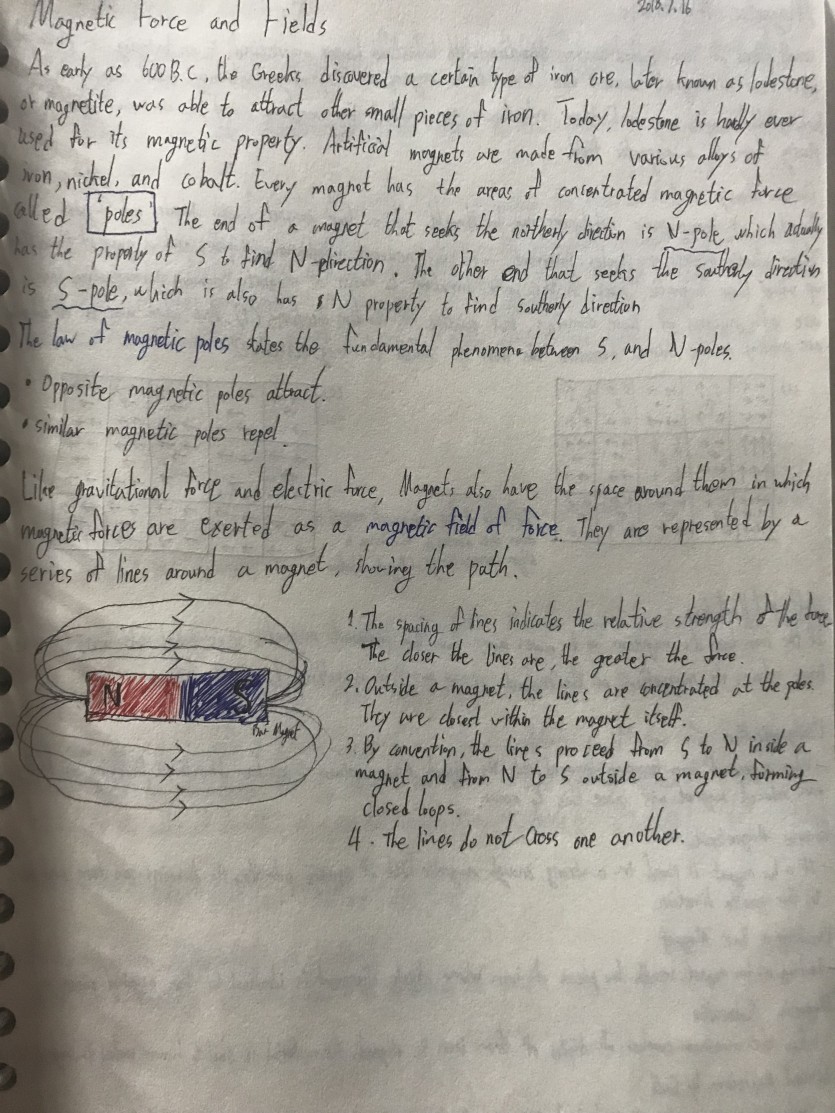 Magnetic Force and Fields
2018.7.16
As early as 600 B.C, the Greeks discovered a certain type of iron ore, later known as lodestone,
or magnetite, was able to attract other small pieces of iron. Today, lodestone is hardly ever
used for its magnetic property. Artificial magnets are made from various alloys of
iron, nickel, and cobalt. Every magnet has the areas of concentrated magnetic force
called 'poles' The end of a magnet that seeks the northerly direction is N-pole which actually
has the property of S to find N-direction. The other end that seeks the southerly direction
is S-pole, which is also has N property to find southerly direction
The law of magnetic poles states the fundamental phenomena between S, and N-poles.
• Opposite magnetic poles attract.
• similar magnetic poles repel.
Like gravitational force and electric force, Magnets also have the space around them in which
magnetic forces are exerted as a magnetic field of force. They are represented by a
series of lines around a magnet, showing the path.
N S
Bar Magnet
1. The spacing of lines indicates the relative strength of the force
The closer the lines are, the greater the force.
2. Outside a magnet, the lines are concentrated at the poles.
They are closest within the magnet itself.
3. By convention, the lines proceed from S to N inside a
magnet and from N to S outside a magnet, forming
closed loops.
4. The lines do not cross one another.